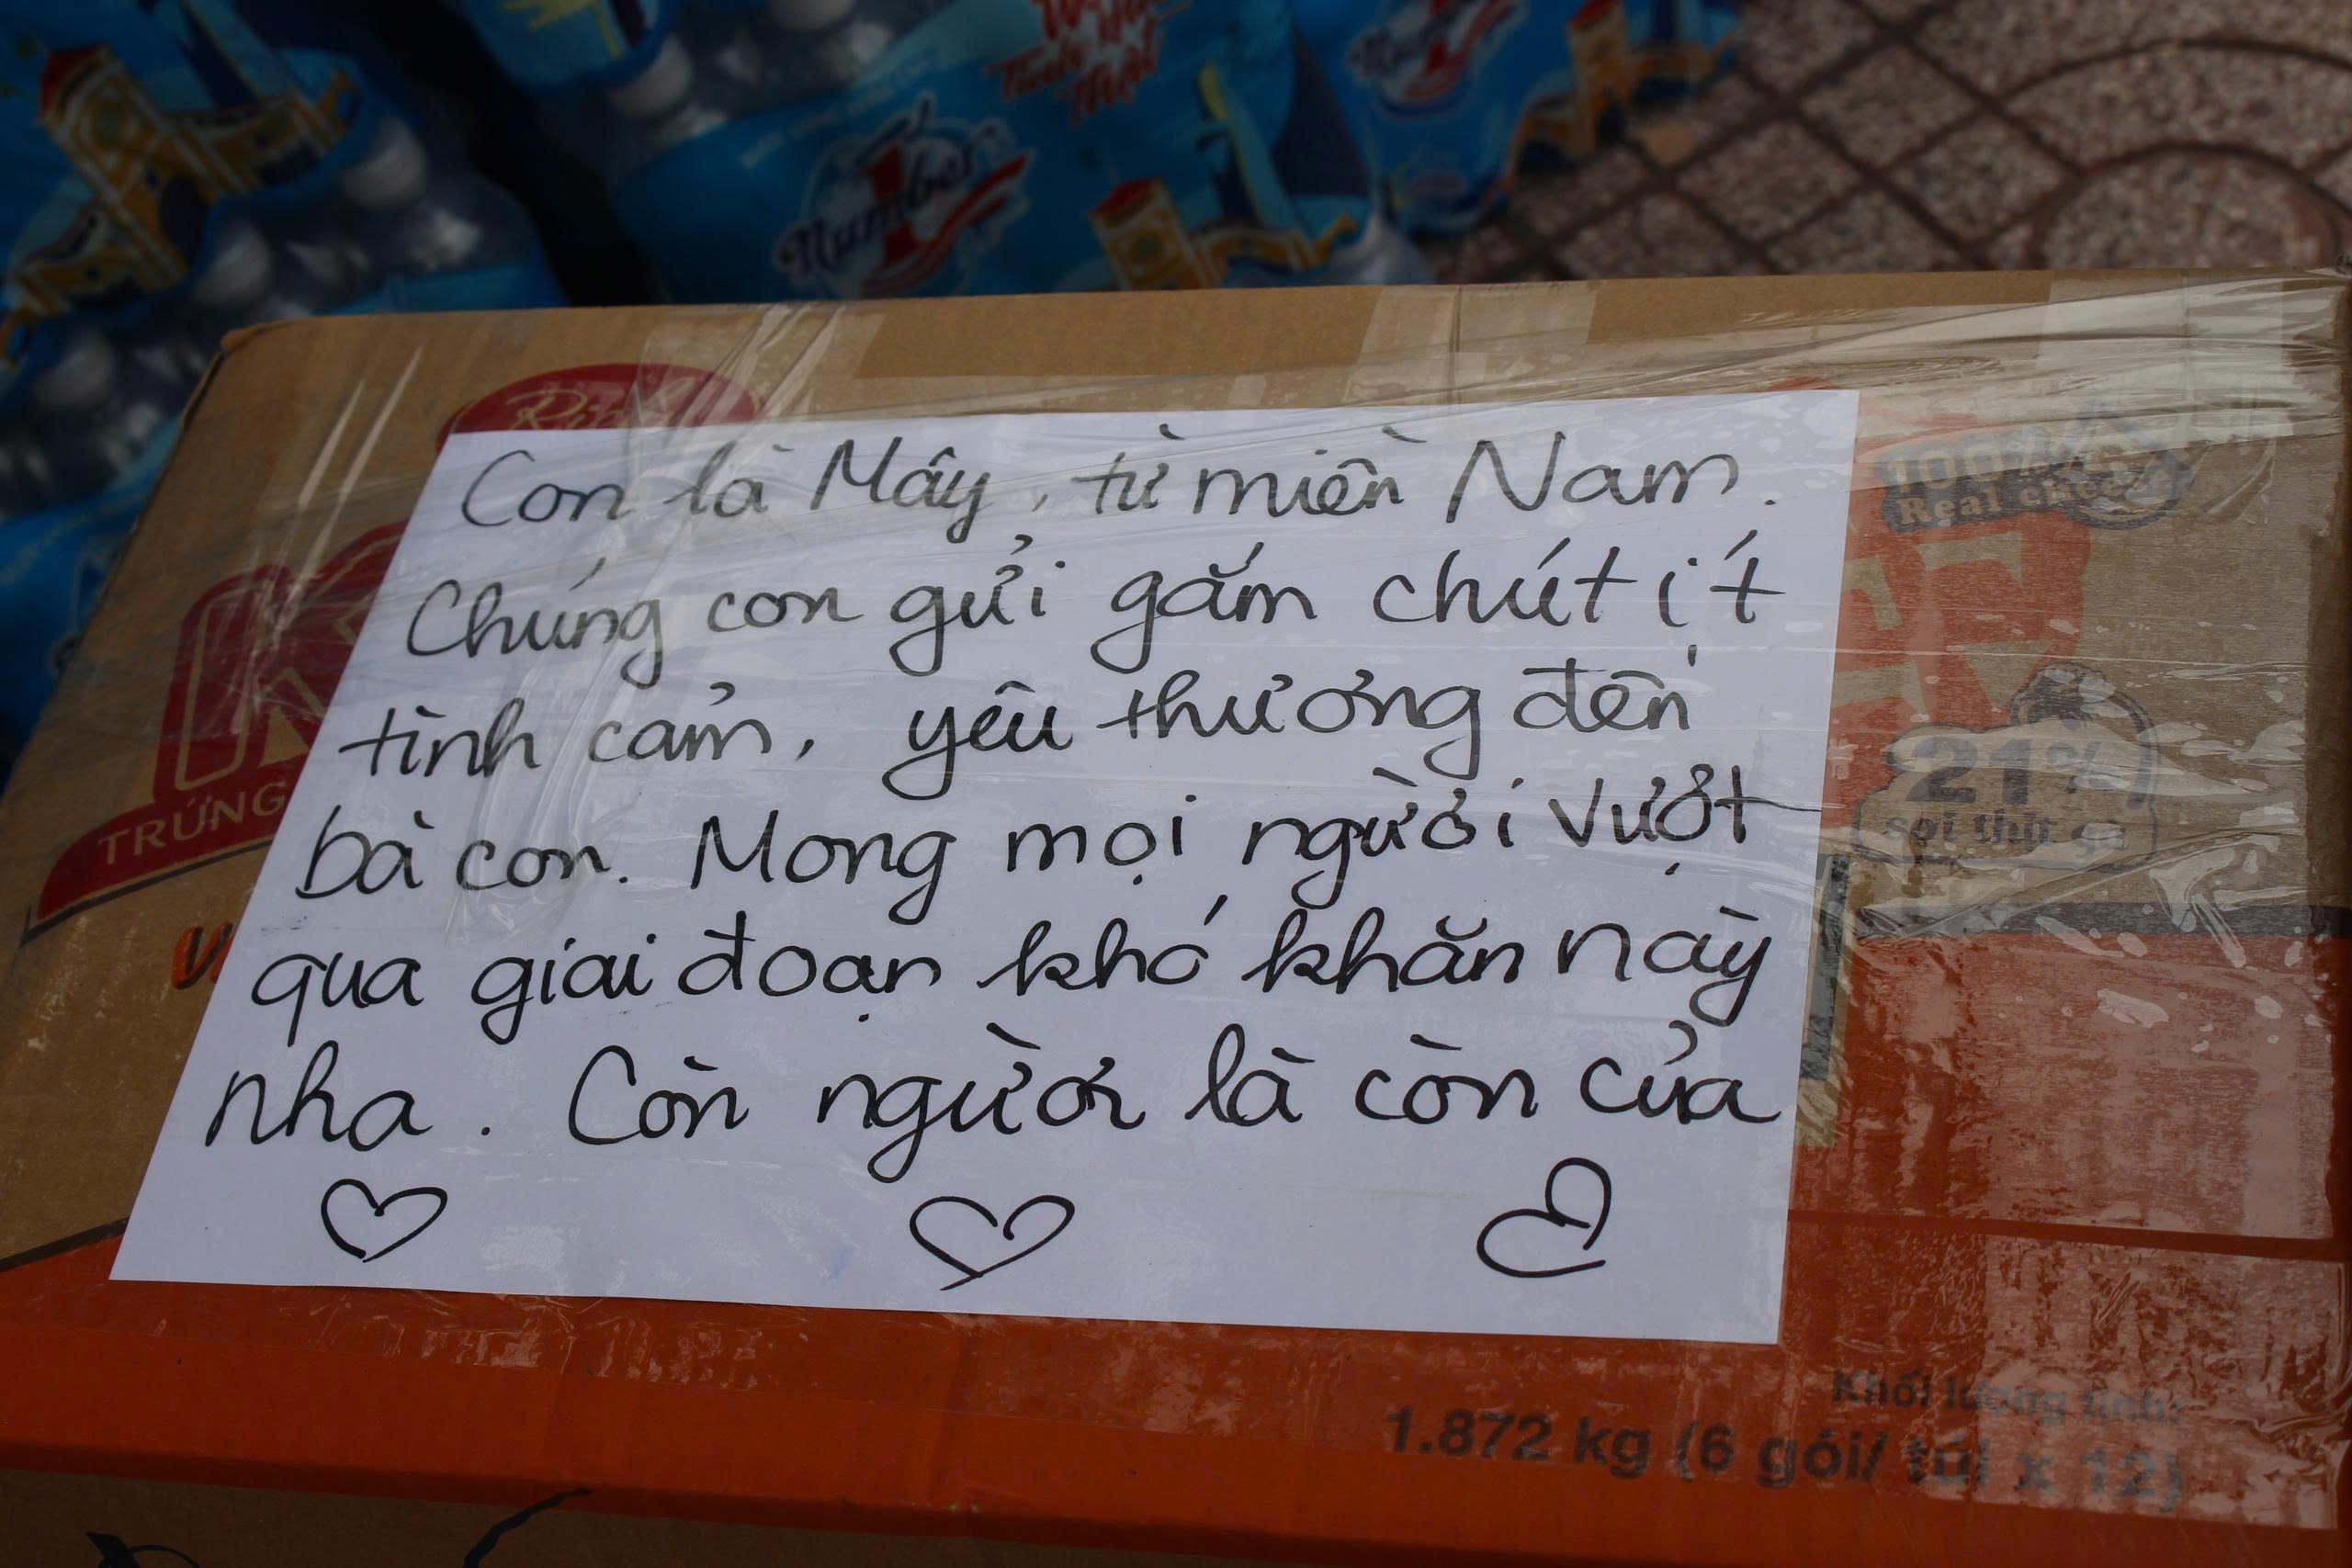 Number 1
Number 1
Con là Mây, từ miền Nam.
Chúng con gửi gắm chút ít
tình cảm, yêu thương đến
bà con. Mong mọi người vượt
qua giai đoạn khó khăn này
nha. Còn người là còn của
100%
Real chicken
TRỨNG
21%
sợi thịt gà
Khối lượng tịnh:
1.872 kg (6 gói/ túi x 12)